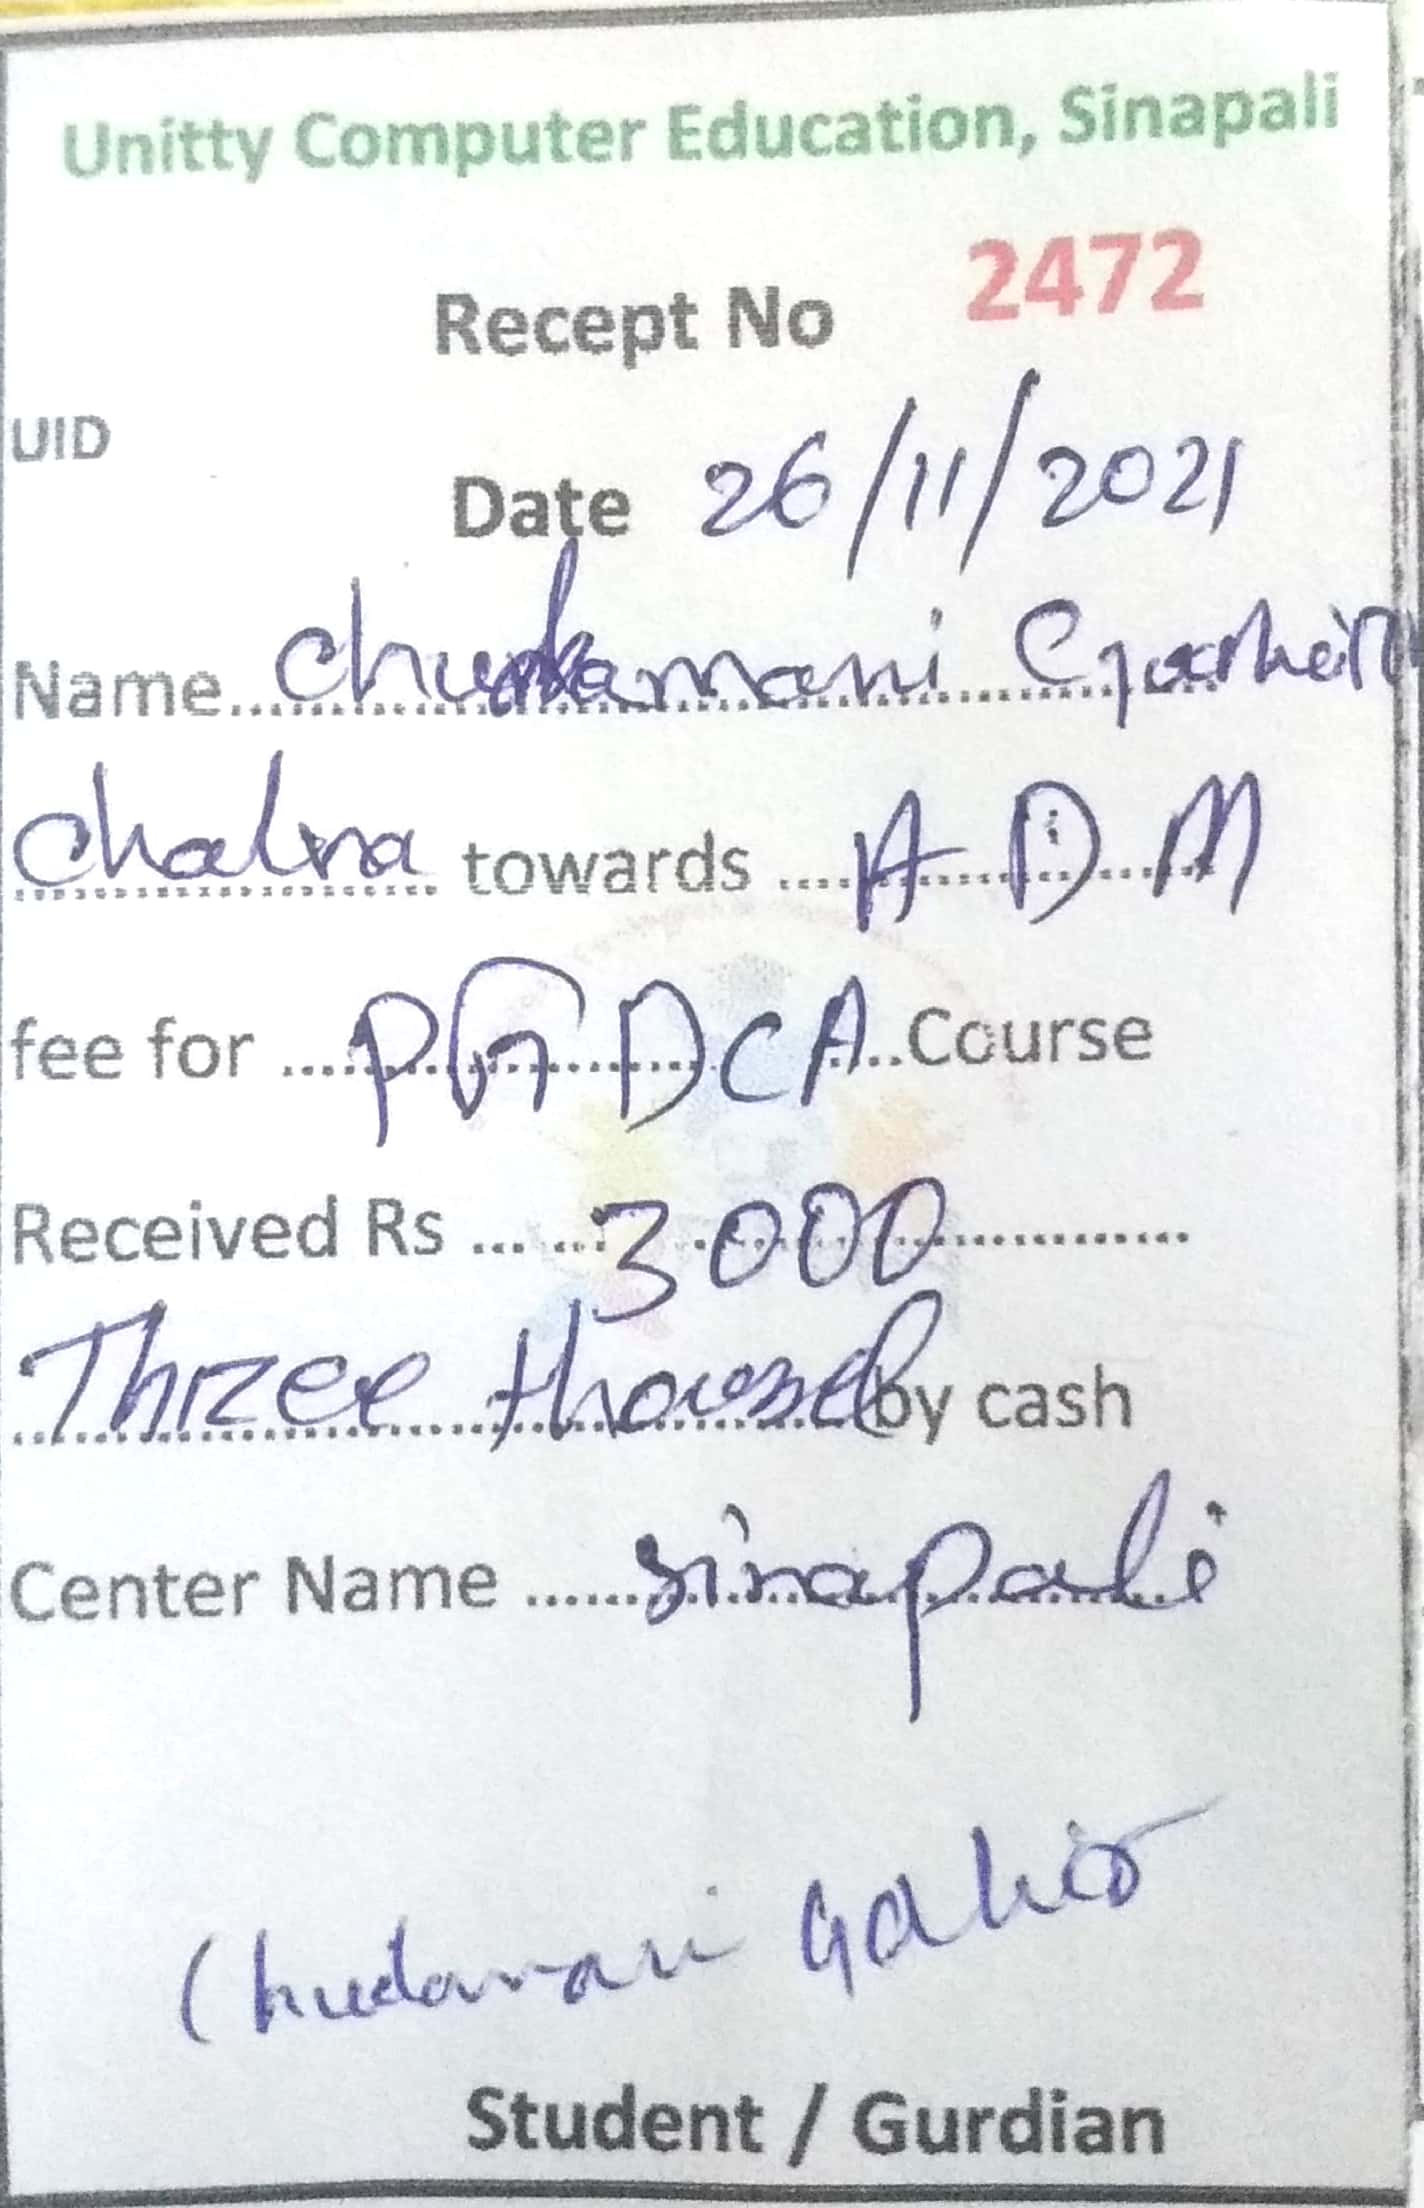 Unitty Computer Education, Sinapali
Recept No 2472
UID
Date 26/11/2021
Name Chudamani Gahir
Chalna towards ADM
fee for PGDCA Course
Received Rs 3000
Three thousnd by cash
Center Name Sinapali
Chudamani Gahir
Student / Gurdian